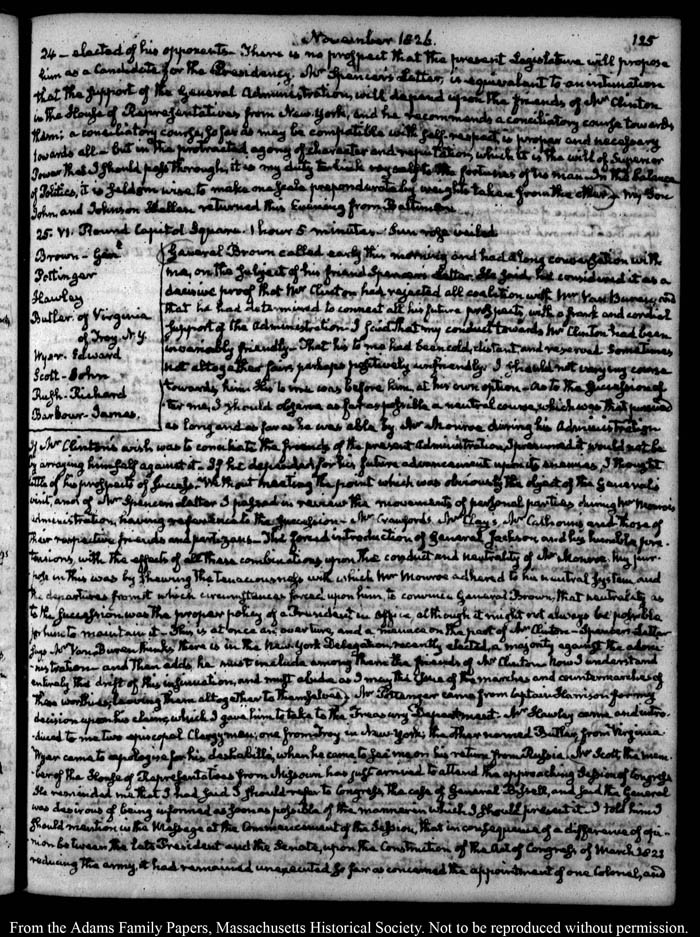 November 1826.
125
24 – elected of his opponents – There is no prospect that the present Legislature will propose
him as a Candidate for the Presidency. Mr Spencer's Letter, is equivalent to an intimation
that the support of the General Administration, will depend upon the friends of Mr Clinton
in the House of Representatives from New-York, and he recommends a conciliatory course towards
them; a conciliatory course, so far as may be compatible with self-respect, is proper and necessary
towards all – but in the protracted agony of character and reputation, which it is the will of Superior
Power that I should pass through, it is my duty to link myself to the fortunes of no man. In the balance
of Politics, it is seldom wise to make one scale preponderate by weights taken from the other. My Son
John, and Johnson Hellen returned this Evening from Baltimore.
25. VI. Round Capitol Square. 1 hour 5 minutes. Sun rose veiled
Brown – Genl
Pottinger
Hawley
Butler. of Virginia
of Troy. N.Y.
Wyer. Edward
Scott – John
Rush – Richard
Barbour – James.
General Brown called early this morning and had a long conversation with
me, on the subject of his friend Spencer's Letter. He said he considered it as a
decisive proof that Mr Clinton had rejected all coalition with Mr Van Buren, and
that he had determined to connect all his future prospects, with a frank and cordial
support of the Administration – I said that my conduct towards Mr Clinton had been
invariably friendly – That his to me had been cold, distant and reserved. Sometimes
not altogether fair, perhaps positively unfriendly. I should not vary my course
towards him. His to me was before him, at his own option – As to the succession af-
ter me, I should observe as far as possible a neutral course, which was that pursued
as long and as far as he was able by Mr Monroe during his Administration
If Mr Clinton's wish was to conciliate the friends of the present Administration, I presumed it would not be
by arraying himself against it – If he depended for his future advancement upon its enemies, I thought
little of his prospects of success. Without meeting the point which was obviously the object of the General's
visit, and of Mr Spencer's Letter I passed in review the movements of personal parties during Mr Monroe's
administration, having reference to the succession – Mr Crawford's, Mr Clay's, Mr Calhoun's and those of
their respective friends and partizans. The forced introduction of General Jackson, and his humble pre-
tensions, with the effects of all these combinations upon the conduct and neutrality of Mr Monroe. My pur-
pose in this was by shewing the tenaciousness with which Mr Monroe adhered to his neutral System, and
the departures from it which circumstances forced upon him, to convince General Brown, that neutrality as
to the Succession was the proper policy of a President in Office, although it might not always be possible
for him to maintain it – This is at once an overture, and a menace on the part of Mr Clinton – Spencer's Letter
says Mr Van Buren thinks there is in the New York Delegation recently elected, a majority against the admi-
nistration – and then adds he must include among them the friends of Mr Clinton. Now I understand
entirely the drift of this insinuation, and must elude as I may the snare of the marches and countermarches of
these worthies; leaving them altogether to themselves. Mr Pottenger came from Captain Harrison for my
decision upon his claim, which I gave him to take to the Treasury Department – Mr Hawley came and intro-
duced to me two episcopal Clergymen, one from Troy in New-York; the other named Butler, from Virginia.
Wyer came to apologise for his deshabille, when he came to see me on his return from Russia. Mr Scott, the mem-
ber of the House of Representatives from Missouri has just arrived to attend the approaching Session of Congress
He reminded me that I had said I should refer to Congress the case of General Bissell, and said the General
was desirous of being informed as soon as possible of the manner in which I should present it. I told him I
should mention in the Message at the Commencement of the Session, that in consequence of a difference of opi-
nion between the late President and the Senate, upon the Construction of the Act of Congress of March 1821
reducing the army, it had remained unexecuted so far as concerned the appointment of one Colonel, and
From the Adams Family Papers, Massachusetts Historical Society. Not to be reproduced without permission.